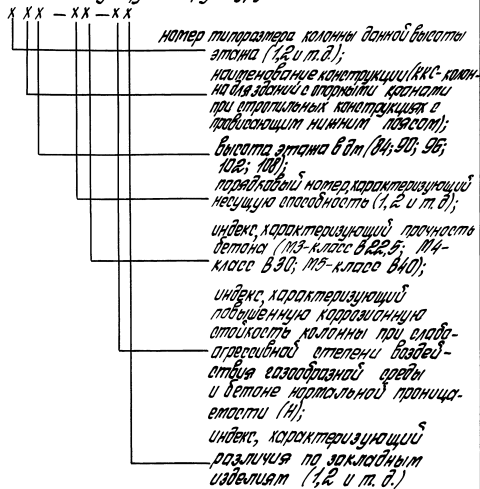 X X X - X X - X X
номер типоразмера колонны данной высоты
этажа (1,2 и т.д);
наименование конструкции (ККС-колон-
на для зданий с опорными кранами
при стропильных конструкциях с
провисающим нижним поясом);
высота этажа в дм (84; 90; 96;
102; 108);
порядковый номер, характеризующий
несущую способность (1,2 и т.д);
индекс, характеризующий прочность
бетона (М3-класс В22,5; М4-
класс В30; М5-класс В40);
индекс, характеризующий
повышенную коррозионную
стойкость колонны при слабо-
агрессивной степени воздей-
ствия газообразной среды
и бетоне нормальной проница-
емости (Н);
индекс, характеризующий
различия по закладным
изделиям (1,2 и т.д.)